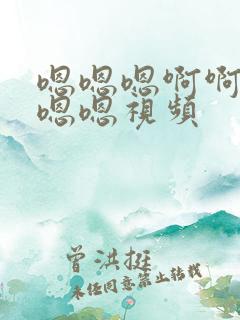 嗯嗯嗯啊啊
嗯嗯視頻
曾洪挺
未经同意禁止转载